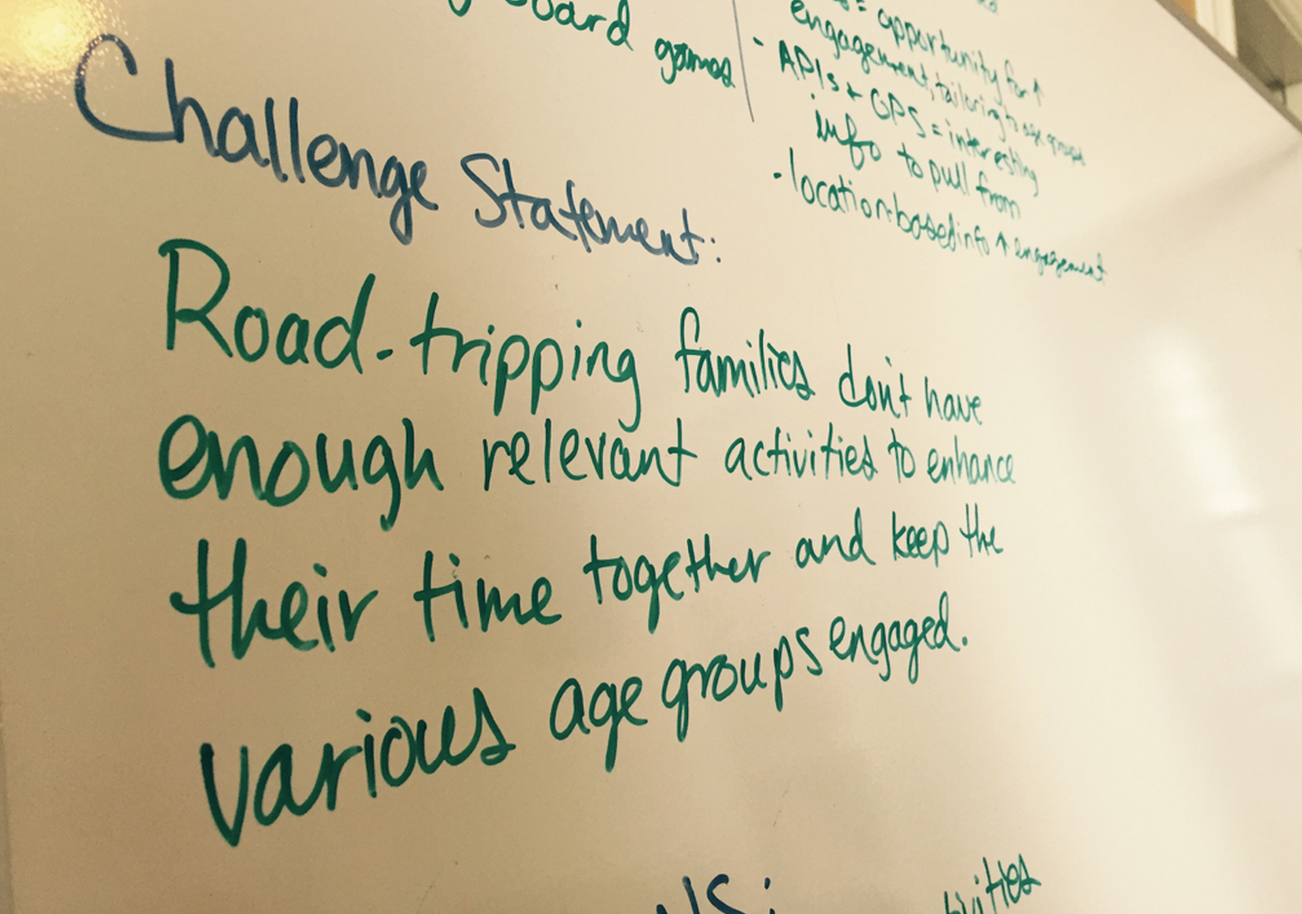 board games
= opportunity for ↑
engagement, tailoring to age groups
- APIs + GPS = interesting
info to pull from
- location-based info ↑ engagement
Challenge Statement:
Road-tripping families don't have
enough relevant activities to enhance
their time together and keep the
various age groups engaged.